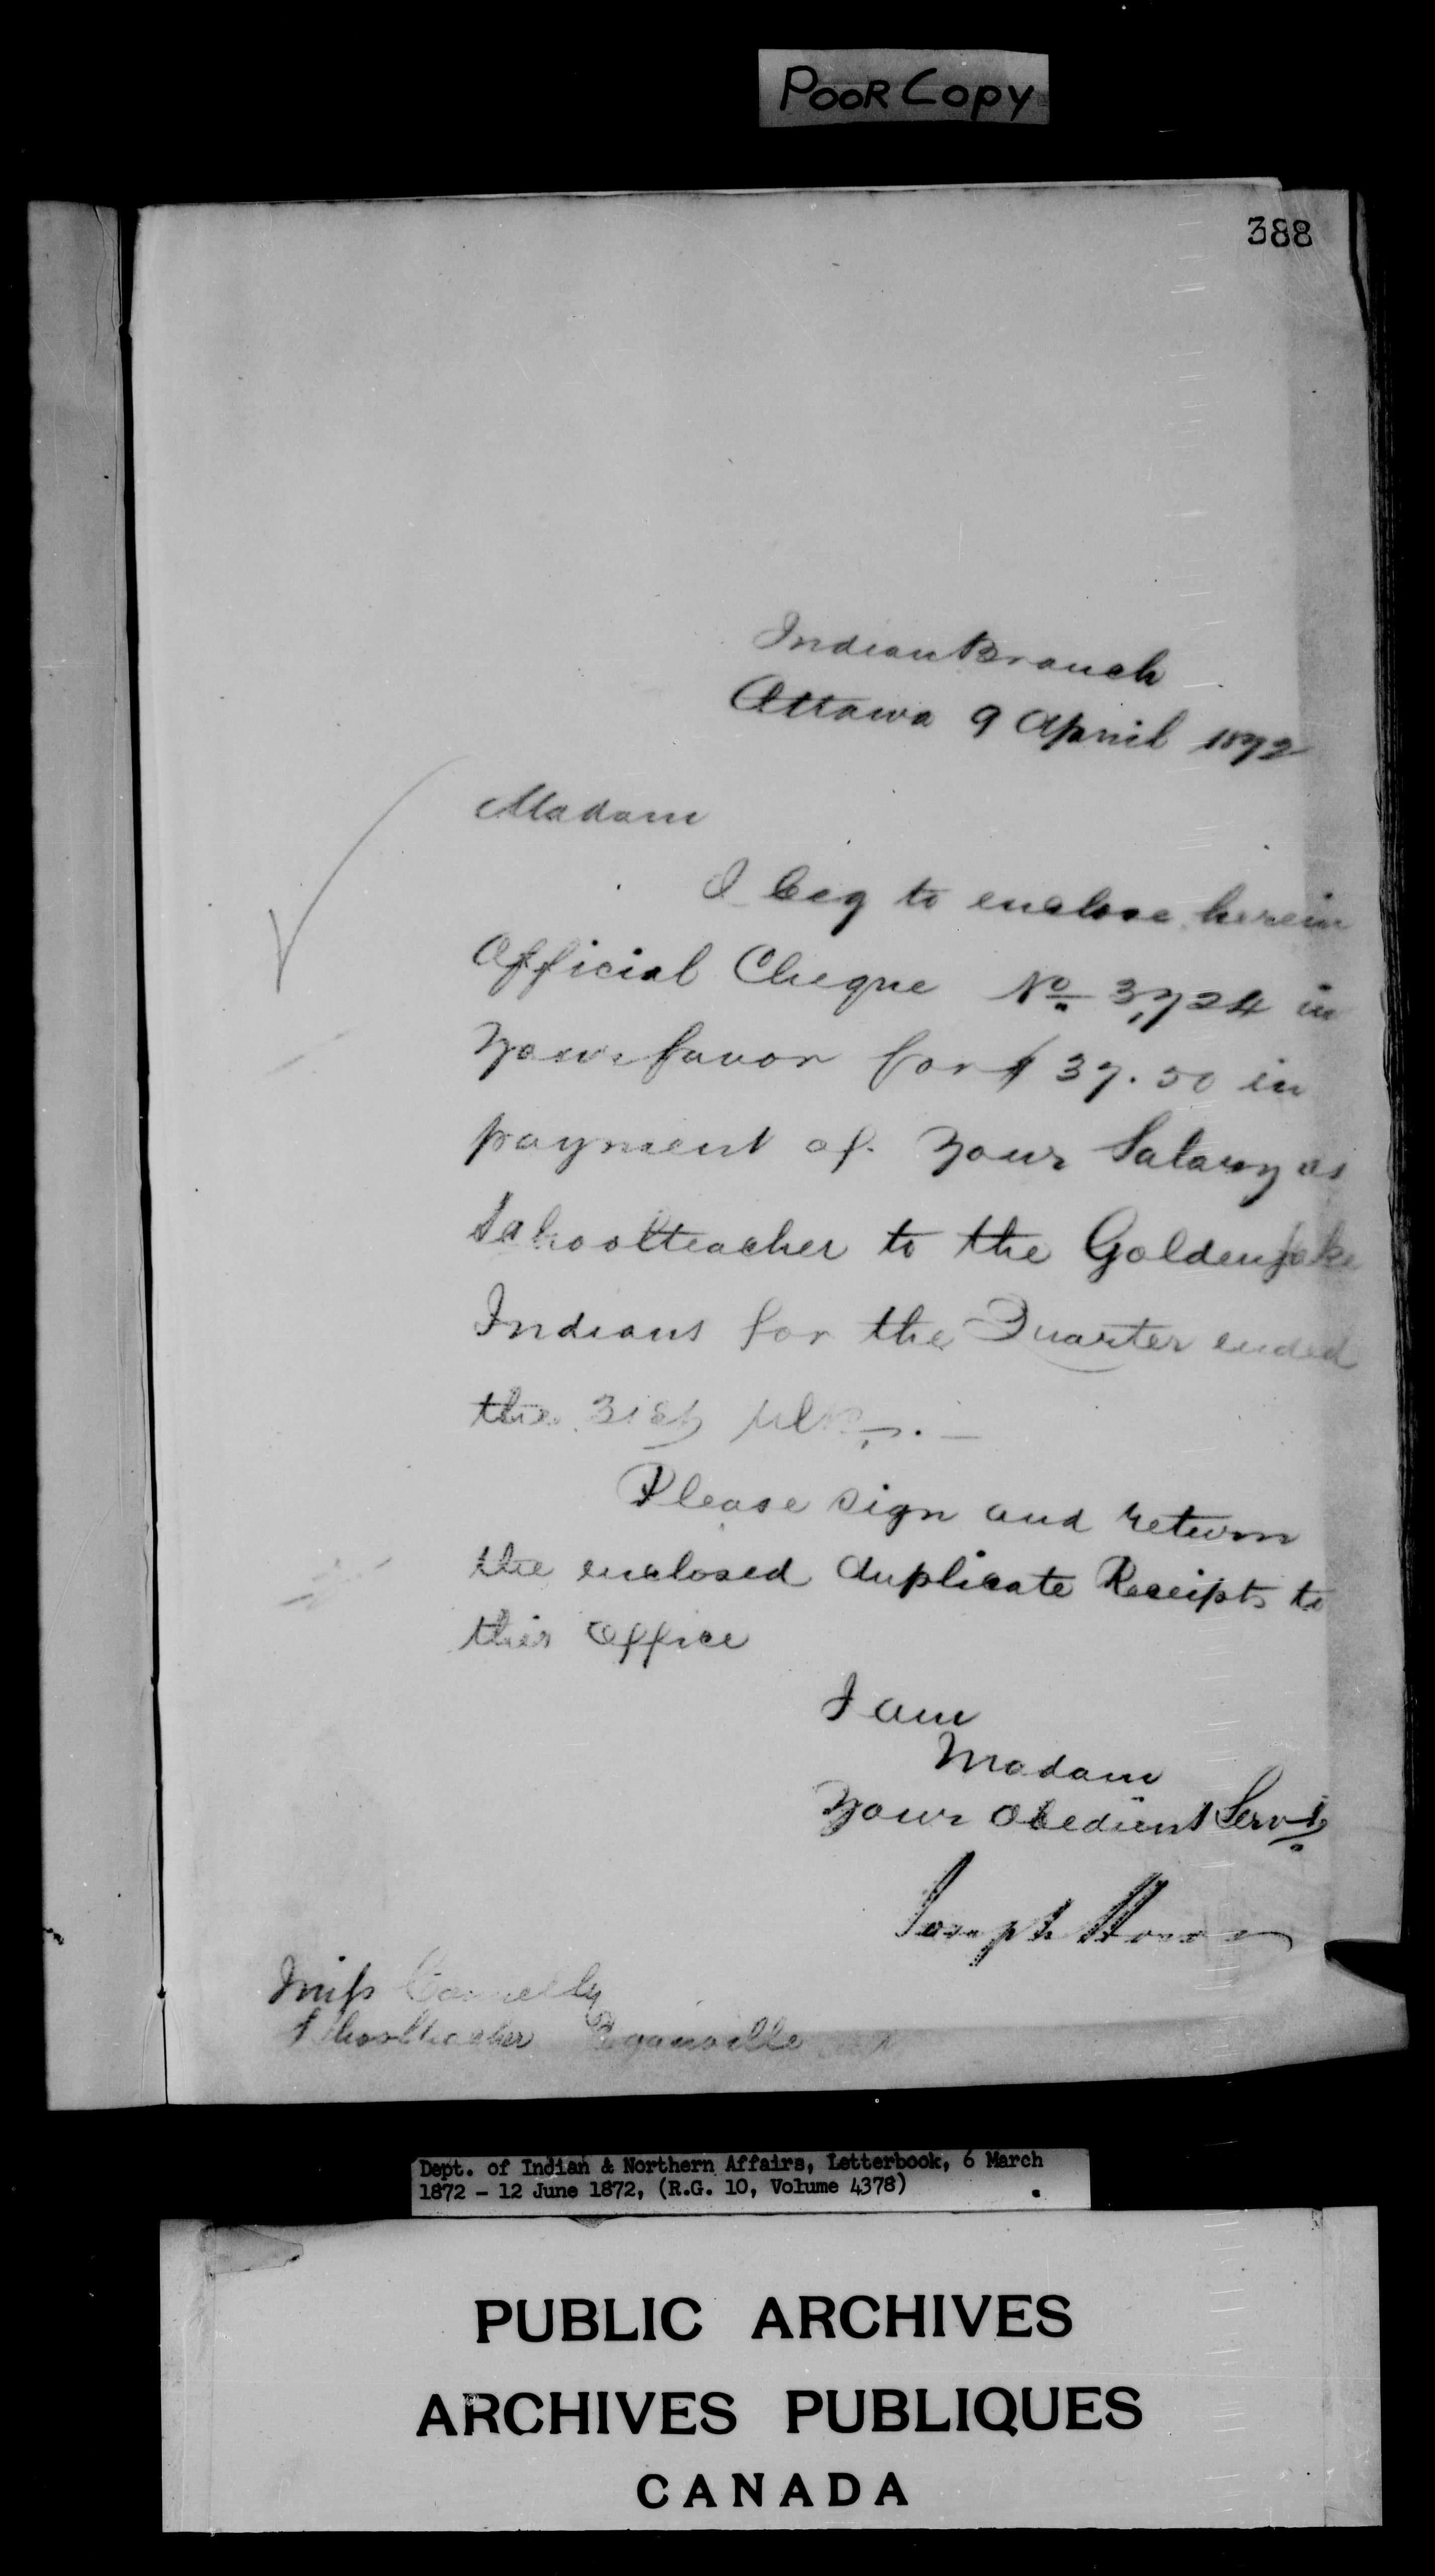 POOR Copy
388
Indian Branch
Ottawa 9 April 1872
Madam
I beg to enclose herein
Official Cheque No 3,724 in
your favor for $ 37.50 in
payment of your Salary as
Schoolteacher to the Golden Lake
Indians for the Quarter ended
the 31st ulto.
Please sign and return
the enclosed duplicate Receipts to
this Office
I am
Madam
Your Obedient Servt
Joseph Howe
Miss Connelly
Schoolteacher Eganville
Dept. of Indian & Northern Affairs, Letterbook, 6 March
1872 - 12 June 1872, (R.G. 10, Volume 4378)
PUBLIC ARCHIVES
ARCHIVES PUBLIQUES
CANADA